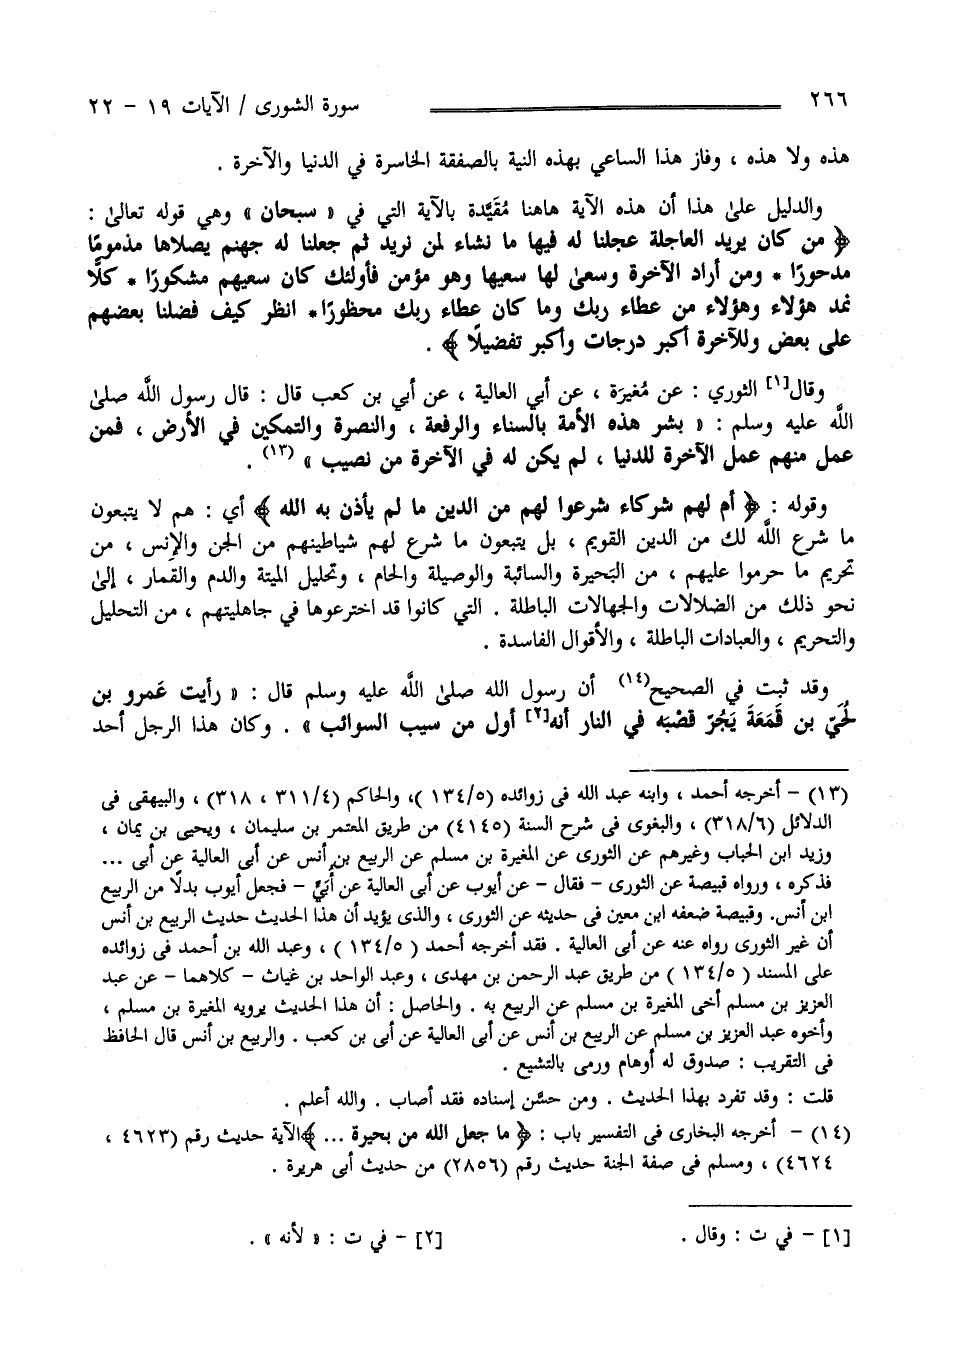 ٢٦٦ سورة الشورى / الآيات ١٩ - ٢٢
هذه ولا هذه ، وفاز هذا الساعي بهذه النية بالصفقة الخاسرة في الدنيا والآخرة .
والدليل علىٰ هذا أن هذه الآية هاهنا مُقَيَّدة بالآية التي في « سبحان » وهي قوله تعالىٰ :
﴿ من كان يريد العاجلة عجلنا له فيها ما نشاء لمن نريد ثم جعلنا له جهنم يصلاها مذمومًا
مدحورًا * ومن أراد الآخرة وسعىٰ لها سعيها وهو مؤمن فأولئك كان سعيهم مشكورًا * كلًّا
نمد هؤلاء وهؤلاء من عطاء ربك وما كان عطاء ربك محظورًا* انظر كيف فضلنا بعضهم
على بعض وللآخرة أكبر درجات وأكبر تفضيلًا ﴾ .
وقال[١] الثوري : عن مُغيرَة ، عن أبي العالية ، عن أبي بن كعب قال : قال رسول اللَّه صلىٰ
اللَّه عليه وسلم : « بشر هذه الأمة بالسناء والرفعة ، والنصرة والتمكين في الأرض ، فمن
عمل منهم عمل الآخرة للدنيا ، لم يكن له في الآخرة من نصيب » (١٣) .
وقوله : ﴿ أم لهم شركاء شرعوا لهم من الدين ما لم يأذن به الله ﴾ أي : هم لا يتبعون
ما شرع اللَّه لك من الدين القويم ، بل يتبعون ما شرع لهم شياطينهم من الجن والإنس ، من
تحريم ما حرموا عليهم ، من البَحيرة والسائبة والوصيلة والحام ، وتحليل الميتة والدم والقمار ، إلىٰ
نحو ذلك من الضلالات والجهالات الباطلة . التي كانوا قد اخترعوها في جاهليتهم ، من التحليل
والتحريم ، والعبادات الباطلة ، والأقوال الفاسدة .
وقد ثبت في الصحيح(١٤) أن رسول الله صلىٰ اللَّه عليه وسلم قال : « رأيت عَمرو بن
لُحَيّ بن قَمَعَةَ يَجُرّ قصْبَه في النار أنه[٢] أول من سيب السوائب » . وكان هذا الرجل أحد
(١٣) - أخرجه أحمد ، وابنه عبد الله فى زوائده (١٣٤/٥ )، والحاكم (٣١١/٤ ، ٣١٨) ، والبيهقى فى
الدلائل (٣١٨/٦) ، والبغوى فى شرح السنة (٤١٤٥) من طريق المعتمر بن سليمان ، ويحيى بن يمان ،
وزيد ابن الحباب وغيرهم عن الثورى عن المغيرة بن مسلم عن الربيع بن أنس عن أبى العالية عن أبى ...
فذكره ، ورواه قبيصة عن الثورى - فقال - عن أيوب عن أبى العالية عن أُبَيٍّ - فجعل أيوب بدلًا من الربيع
ابن أنس. وقبيصة ضعفه ابن معين فى حديثه عن الثورى ، والذى يؤيد أن هذا الحديث حديث الربيع بن أنس
أن غير الثورى رواه عنه عن أبى العالية . فقد أخرجه أحمد ( ١٣٤/٥ ) ، وعبد الله بن أحمد فى زوائده
على المسند ( ١٣٤/٥ ) من طريق عبد الرحمن بن مهدى ، وعبد الواحد بن غياث - كلاهما - عن عبد
العزيز بن مسلم أخى المغيرة بن مسلم عن الربيع به . والحاصل : أن هذا الحديث يرويه المغيرة بن مسلم ،
وأخوه عبد العزيز بن مسلم عن الربيع بن أنس عن أبى العالية عن أبى بن كعب . والربيع بن أنس قال الحافظ
فى التقريب : صدوق له أوهام ورمى بالتشيع .
قلت : وقد تفرد بهذا الحديث . ومن حسَّن إسناده فقد أصاب . والله أعلم .
(١٤) - أخرجه البخارى فى التفسير باب : ﴿ ما جعل الله من بحيرة ... ﴾الآية حديث رقم (٤٦٢٣ ،
٤٦٢٤) ، ومسلم فى صفة الجنة حديث رقم (٢٨٥٦) من حديث أبى هريرة .
[١] - في ت : وقال . [٢] - في ت : « لأنه » .